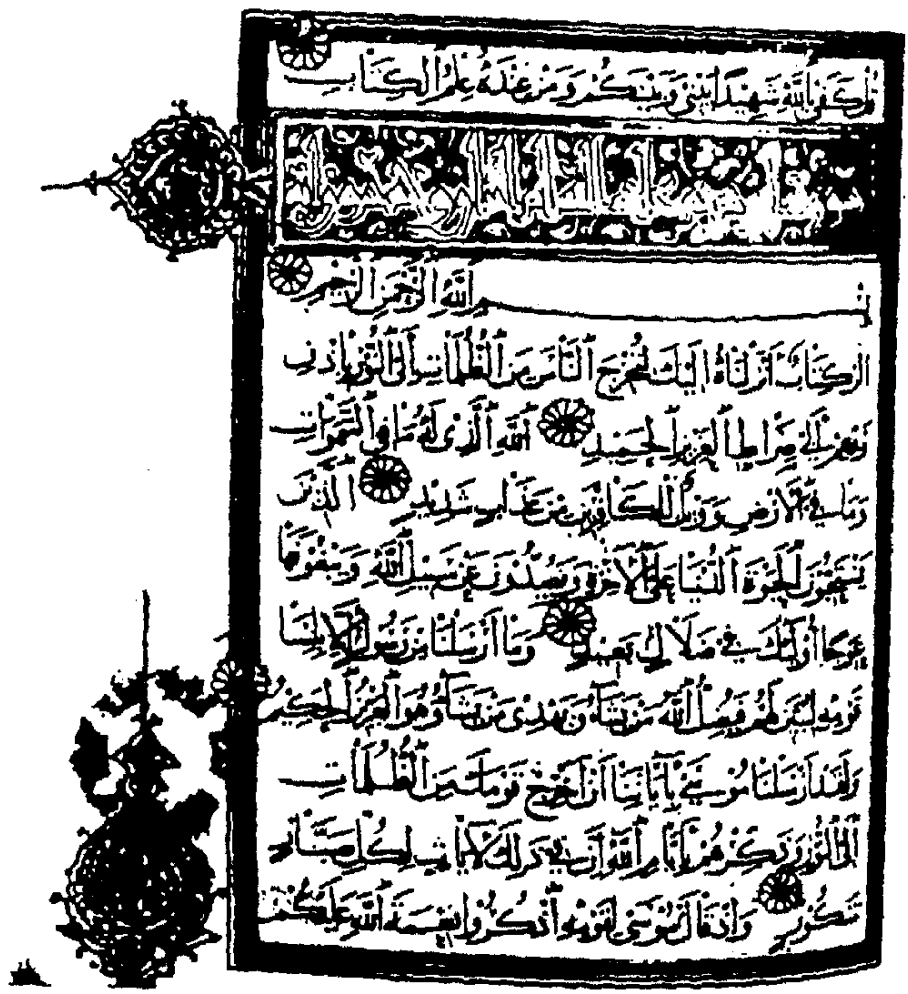 قُلْ كَفَى بِاللَّهِ شَهِيدًا بَيْنِي وَبَيْنَكُمْ وَمَنْ عِنْدَهُ عِلْمُ الْكِتَابِ
بِسْمِ اللَّهِ الرَّحْمَنِ الرَّحِيمِ
الر كِتَابٌ أَنْزَلْنَاهُ إِلَيْكَ لِتُخْرِجَ النَّاسَ مِنَ الظُّلُمَاتِ إِلَى النُّورِ بِإِذْنِ
رَبِّهِمْ إِلَى صِرَاطِ الْعَزِيزِ الْحَمِيدِ اللَّهِ الَّذِي لَهُ مَا فِي السَّمَوَاتِ
وَمَا فِي الْأَرْضِ وَوَيْلٌ لِلْكَافِرِينَ مِنْ عَذَابٍ شَدِيدٍ الَّذِينَ
يَسْتَحِبُّونَ الْحَيَوةَ الدُّنْيَا عَلَى الْآخِرَةِ وَيَصُدُّونَ عَنْ سَبِيلِ اللَّهِ وَيَبْغُونَهَا
عِوَجًا أُولَئِكَ فِي ضَلَالٍ بَعِيدٍ وَمَا أَرْسَلْنَا مِنْ رَسُولٍ إِلَّا بِلِسَانِ
قَوْمِهِ لِيُبَيِّنَ لَهُمْ فَيُضِلُّ اللَّهُ مَنْ يَشَاءُ وَيَهْدِي مَنْ يَشَاءُ وَهُوَ الْعَزِيزُ الْحَكِيمُ
وَلَقَدْ أَرْسَلْنَا مُوسَى بِآيَاتِنَا أَنْ أَخْرِجْ قَوْمَكَ مِنَ الظُّلُمَاتِ
إِلَى النُّورِ وَذَكِّرْهُمْ بِأَيَّامِ اللَّهِ إِنَّ فِي ذَلِكَ لَآيَاتٍ لِكُلِّ صَبَّارٍ
شَكُورٍ وَإِذْ قَالَ مُوسَى لِقَوْمِهِ اذْكُرُوا نِعْمَةَ اللَّهِ عَلَيْكُمْ